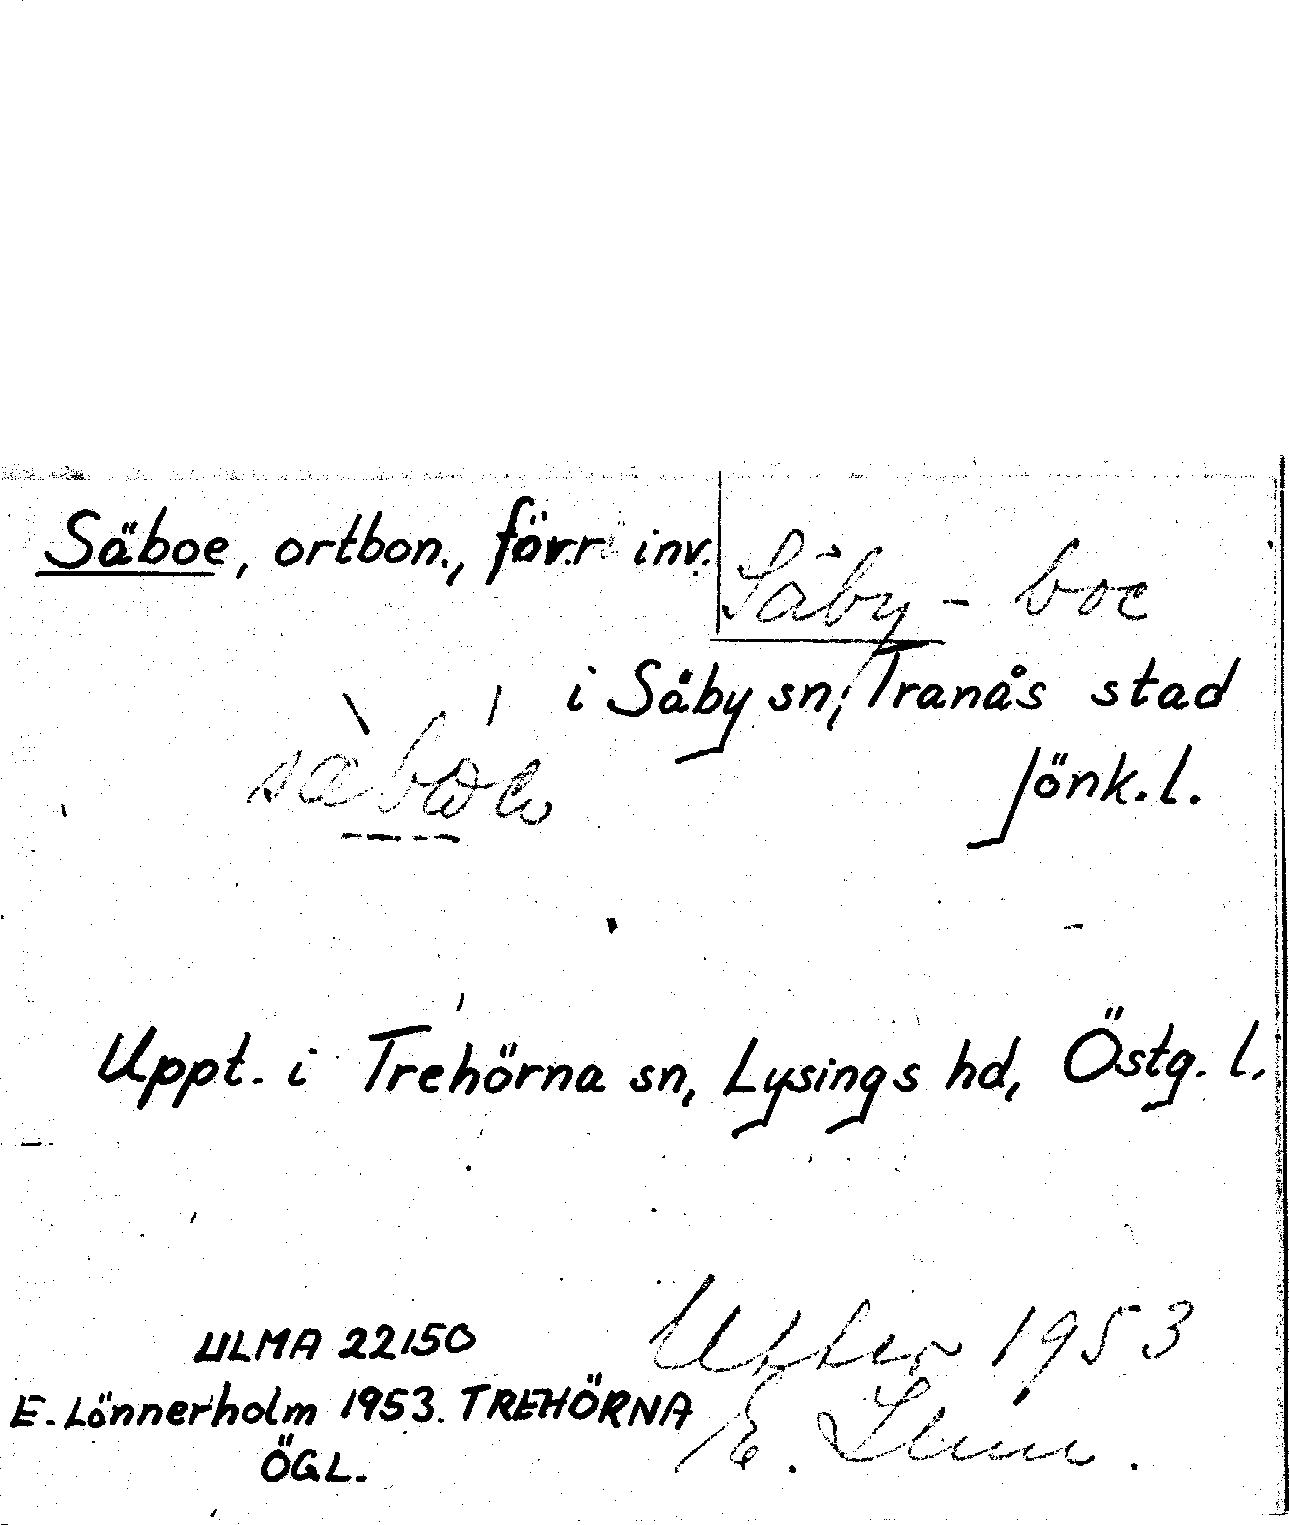 Säboe, ortbon., förr inv.
Säby - boe
i Säby sn, Tranås stad
Jönk. l.
Uppt. i Trehörna sn, Lysings hd, Östg. l.
ULMA 22150
E. Lönnerholm 1953. TREHÖRNA
ÖGL.
Utter 1953
E.